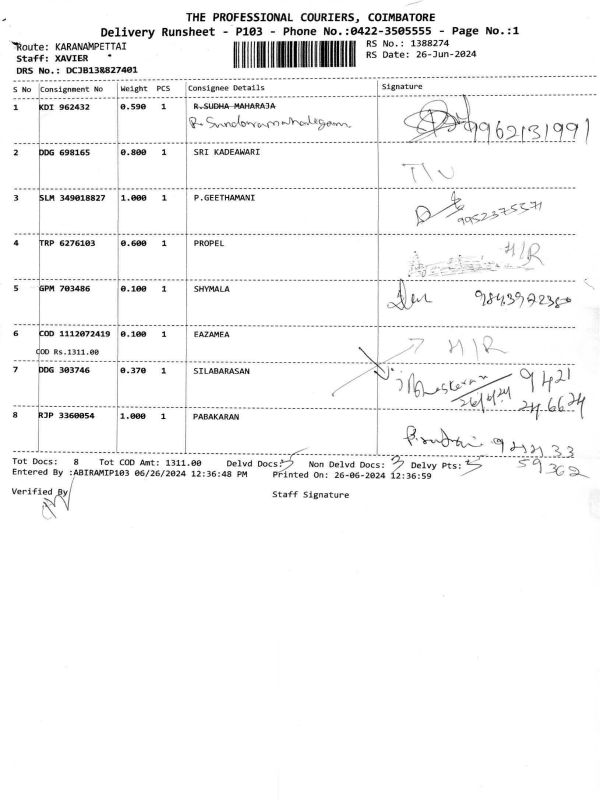 THE PROFESSIONAL COURIERS, COIMBATORE
Delivery Runsheet - P103 - Phone No.:0422-3505555 - Page No.:1
Route: KARANAMPETTAI RS No.: 1388274
Staff: XAVIER RS Date: 26-Jun-2024
DRS No.: DCJB138827401
S No Consignment No Weight PCS Consignee Details Signature
1 KDI 962432 0.590 1 R.SUDHA MAHARAJA
9962131991
2 DDG 698165 0.800 1 SRI KADEAWARI
3 SLM 349018827 1.000 1 P.GEETHAMANI
9952375571
4 TRP 6276103 0.600 1 PROPEL H/R
5 GPM 703486 0.100 1 SHYMALA
6 COD 1112072419 0.100 1 EAZAMEA H/R
COD Rs.1311.00
7 DDG 303746 0.370 1 SILABARASAN 9421
26/6/24 246624
8 RJP 3360054 1.000 1 PABAKARAN
Tot Docs: 8 Tot COD Amt: 1311.00 Delvd Docs: 5 Non Delvd Docs: 3 Delvy Pts: 5 59362
Entered By :ABIRAMIP103 06/26/2024 12:36:48 PM Printed On: 26-06-2024 12:36:59
Verified By Staff Signature